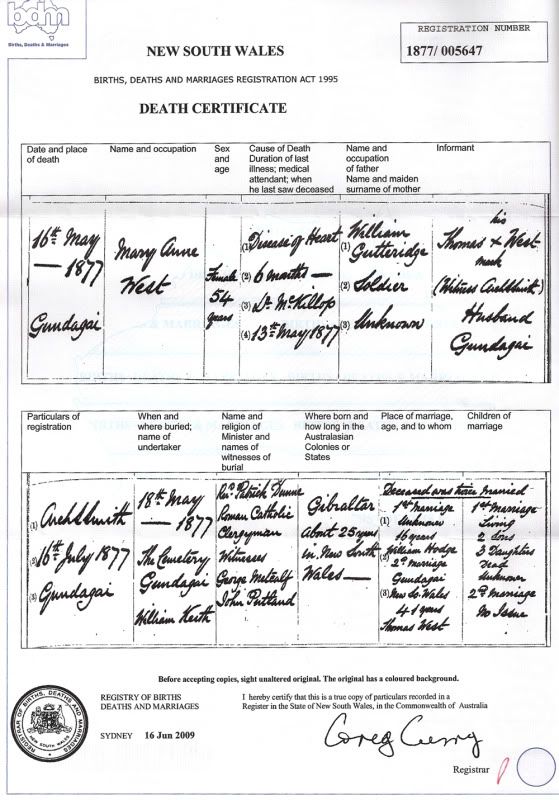 bdm
Births, Deaths & Marriages
REGISTRATION NUMBER
1877/ 005647
NEW SOUTH WALES
BIRTHS, DEATHS AND MARRIAGES REGISTRATION ACT 1995
DEATH CERTIFICATE
Date and place
of death
Name and occupation
Sex
and
age
Cause of Death
Duration of last
illness; medical
attendant; when
he last saw deceased
Name and
occupation
of father
Name and maiden
surname of mother
Informant
16th May
— 1877
Gundagai
Mary Anne
West
Female
54
years
(1) Disease of Heart
(2) 6 months —
(3) Dr McKillop
(4) 13th May 1877
William
(1) Gutteridge
(2) Soldier
(3) Unknown
his
Thomas x West
mark
(Witness
Husband
Gundagai
Particulars of
registration
When and
where buried;
name of
undertaker
Name and
religion of
Minister and
names of
witnesses of
burial
Where born and
how long in the
Australasian
Colonies or
States
Place of marriage,
age, and to whom
Children of
marriage
(1)
(2) 16th July 1877
(3) Gundagai
18th May
— 1877
The Cemetery
Gundagai
William Keith
Revd. Patrick Dunne
Roman Catholic
Clergyman
Witnesses
George Metcalf
John Portland
Gibraltar
About 25 years
in New South
Wales —
Deceased was twice Married
1st Marriage
(1) Unknown
16 years
(2) William Hodge
2nd Marriage
Gundagai
(3) New So. Wales
41 years
Thomas West
1st Marriage
Living
2 Sons
3 Daughters
Dead
Unknown
2nd Marriage
No Issue
Before accepting copies, sight unaltered original. The original has a coloured background.
REGISTRY OF BIRTHS
DEATHS AND MARRIAGES
SYDNEY 16 Jun 2009
I hereby certify that this is a true copy of particulars recorded in a
Register in the State of New South Wales, in the Commonwealth of Australia
Greg Curry
Registrar
REGISTRAR OF BIRTHS, DEATHS AND MARRIAGES
NEW SOUTH WALES